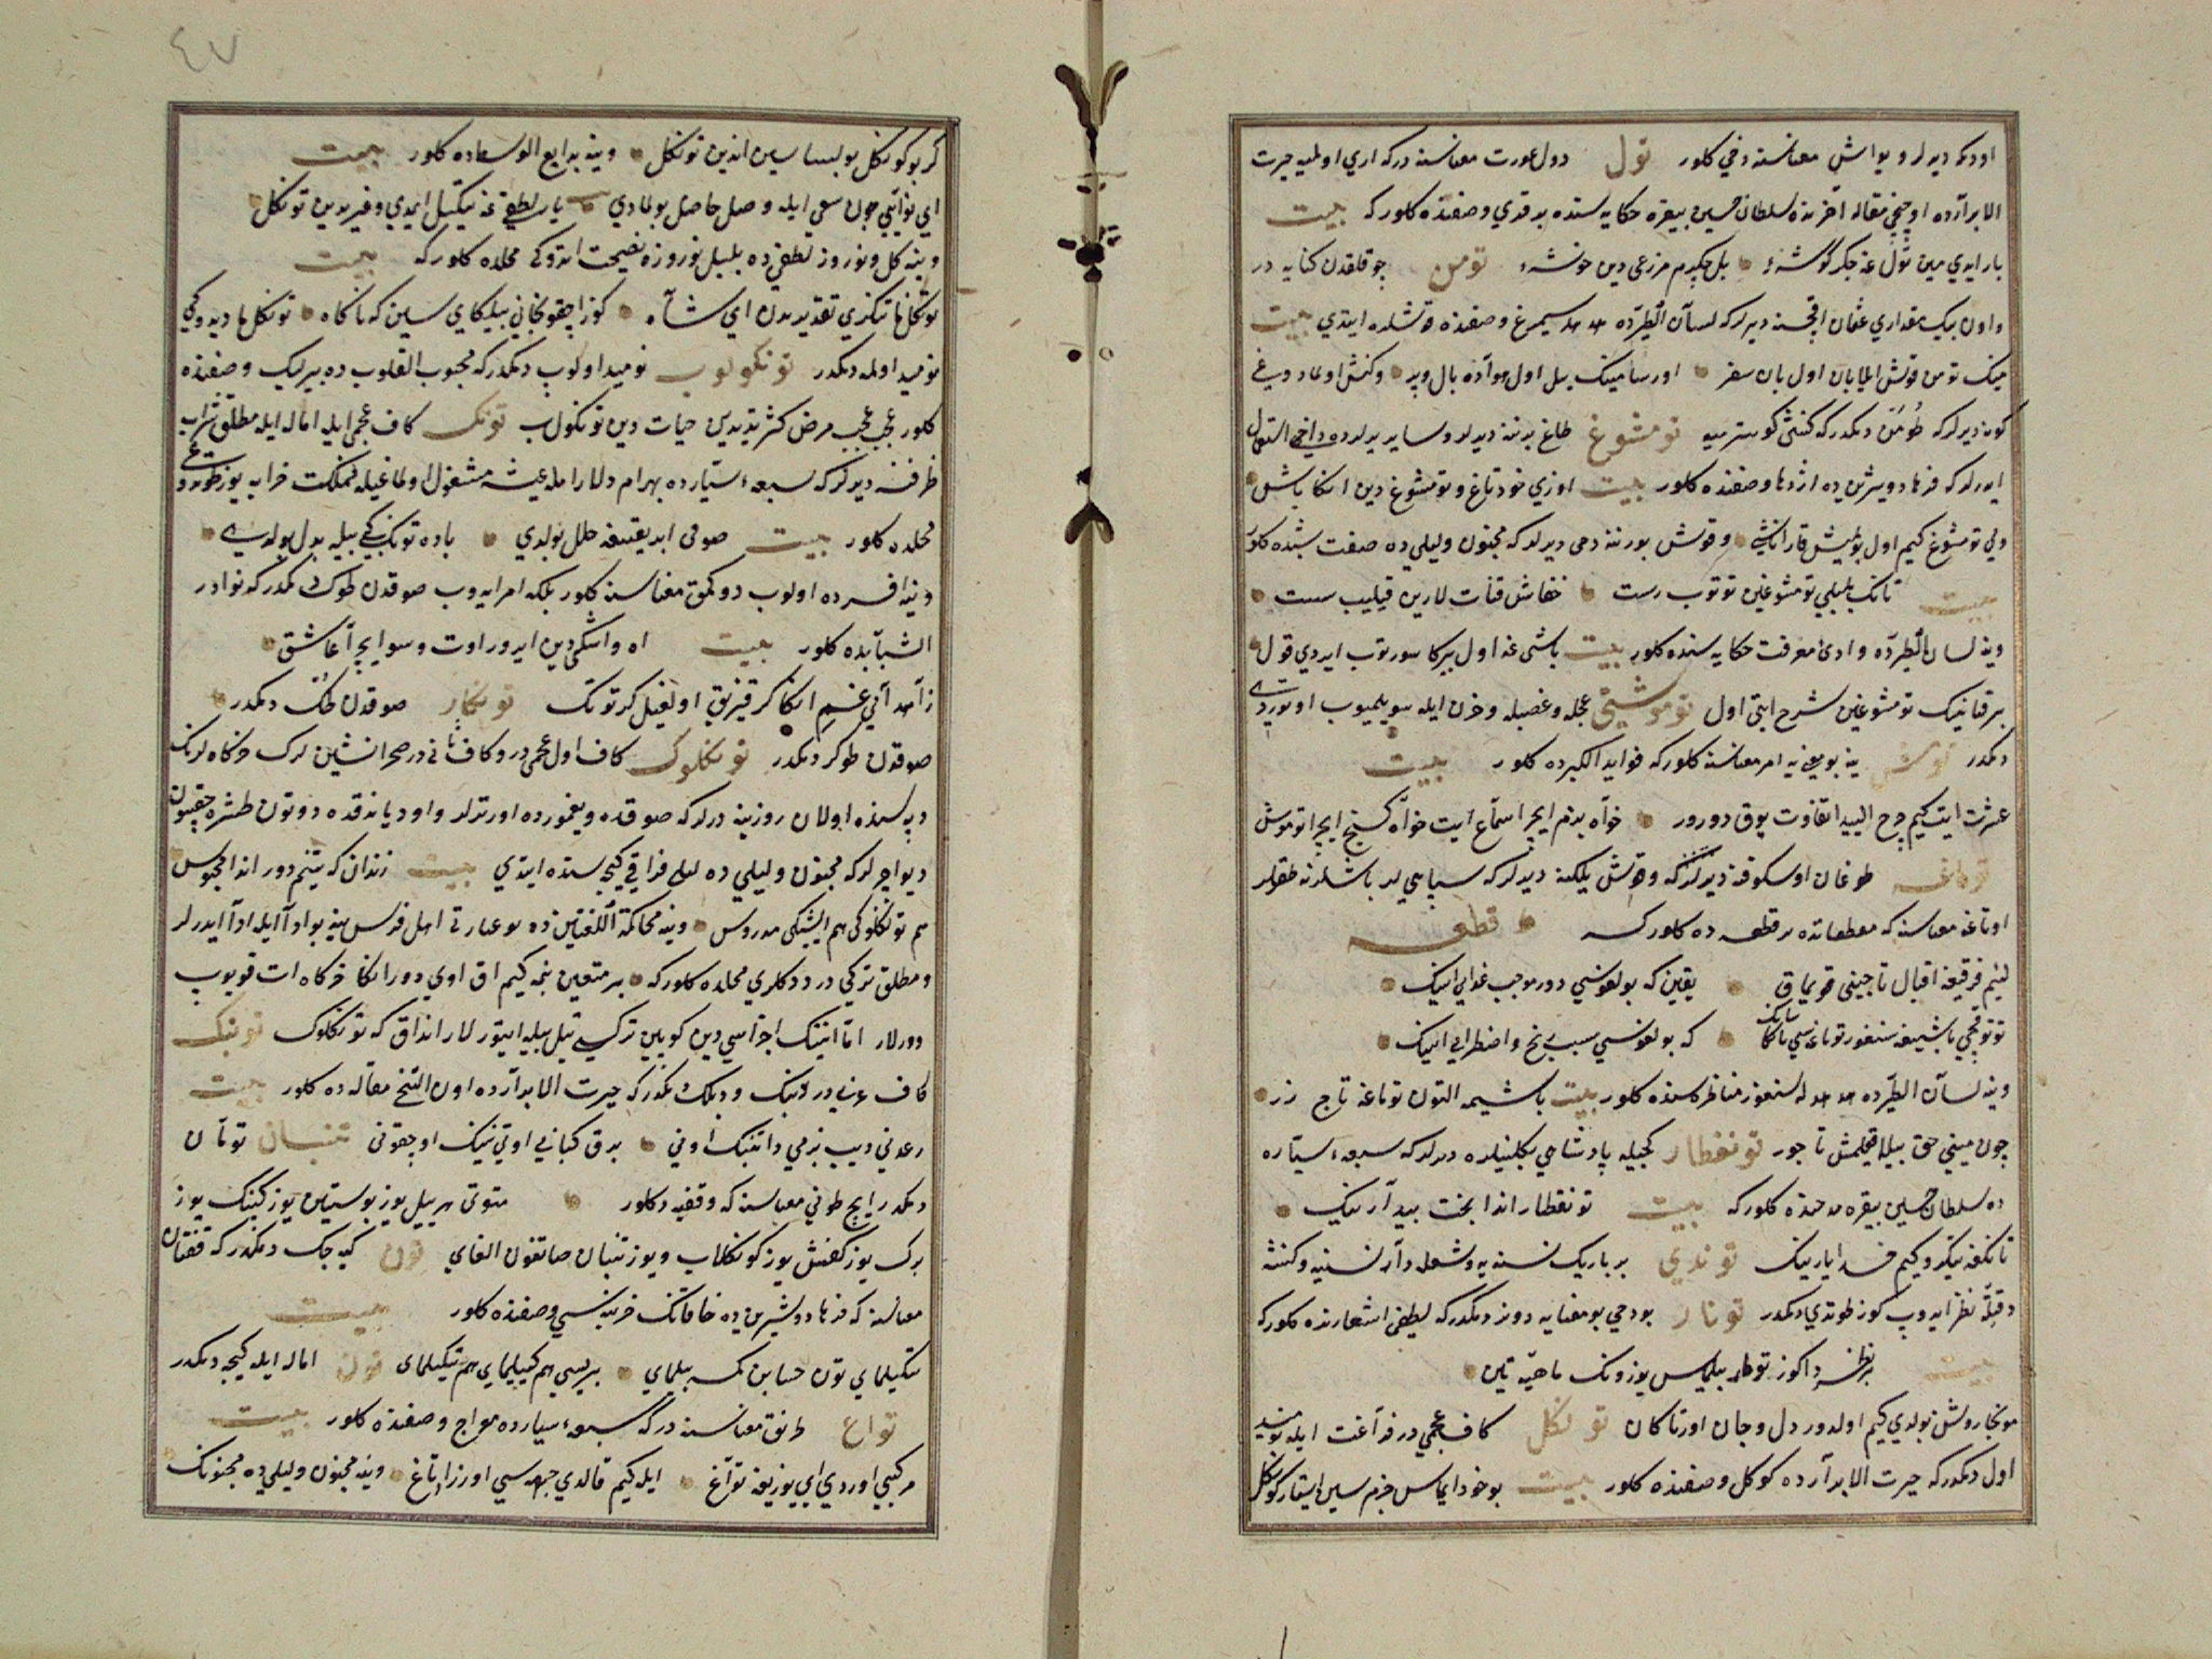 اودیمه دیرلر و یواش معناسنه دخی کلور تول دول عورت معناسنه در که اری اولمیه حیرت
الابرارده اوچنجی مقاله آخرنده سلطان حسین بیقره حکایه سنده بدقدی وصفنده کلور که بیت
بار ایدی مین تول غه جکر کوشهٔ بل جکرم مزرعی دین خوشهٔ تومن چوقلقدن کنایه در
و اون بیک مقداری عثمان اقچسنه دیرلر که لسان الطیرده هدهد سیمرغ وصفنده قوشلره ایتدی بیت
مینک تومن قوش ایلابان اول یان سفر اورسا مینک ییل اول هواده بال و پر و کنش اولمادوغی
کونه دیرلر که طومن دیمکدر که کنشی کوسترمیه تومشوغ طاغ بدننه دیرلر و سایر یرلرده داخی استعمال
ایدرلر که فرهاد و شیرین ده اژدها وصفنده کلور بیت اوزی خود تاغ و تومشوغ دین انکا باش
ولی تومشوغ کیم اول بولمیش قارا تاش و قوش بورننه دخی دیرلر که مجنون و لیلی ده صفت شبده کلور
بیت تانک بلبلی تومشوغین توتوب رست خفاش قنات لارین قیلیب سست
وینه لسان الطیرده وادی معرفت حکایه سنده کلور بیت باشی غه اول بیرکا سورتوب ایردی قول
بیر قانینک تومشوغین شرح ایتی اول توموشیتی عجله و غضبله و حزن ایله سویلمیوب اوتوردی
دیمکدر توموش ینه بو معنی یه امر معناسنه کلور که فواید الکبرده کلور بیت
عشرت ایت کیم چرخ الییدا تفاوت یوق دورور خواه بزم ایچرا سماع ایت خواه کنج ایچرا توموش
توماغه طوغان اوسکوفنه دیرلر که و قوش یلکنه دیرلر که سپاهی لر باشلرنه طقرلر
اوتاغه معناسنه که مقطعاتده بر قطعه ده کلور که قطعه
لئیم فرقیغه اقبال تاجینی قویماق یقین که بولغوسی دور موجب عذابی انینک
توتوقچی باشیغه سنقور توماغه سی یانکلیغ که بولغوسی سبب رنج و اضطرابی انینک
وینه لسان الطیرده هدهد له سنغور مناظره سنده کلور بیت باشیمه التون توماغه تاج زر
چون مینی حق بیلا قیلمش تاجور تونقطار کیجه پادشاهی بکلینلره دیرلر که سبعهٔ سیاره
ده سلطان حسین بیقره مدحنده کلور که بیت تونقطار اندا بخت بیدارینک
تانکغه تیکرو کیم فسدا یارینک توندی بر باریک نسنه یه و شعله دار نسنیه و کنشه
دقتله نظر ایدوب کوز طوتدی دیمکدر تونار بو دخی بو معنایه دونر دیمکدر که لطفی اشعارنده کلور که
بیت بر نظر دا کوز توطار بیلماس یوزونک ماهیتین
مونجا روشن بولدی کیم اولدور دل و جان اورتاکان تونکل کاف عجمی در فراغت ایله نومید
اول دیمکدر که حیرت الابرارده کوکل وصفنده کلور بیت بو خود ایماس جرم سین ایستار کونکل
کر بو کونکل بولسا سین اندین تونکل وینه بدایع الوسطاده کلور بیت
ای نوائی چون سعی ایله وصل حاصل بولمادی یار لطفی غه تیکیل ایمدی و غیریدین تونکل
وینه کل و نوروز لطفی ده بلبل نوروزه نصیحت ایتدوکی محلده کلور که بیت
تونکل ما تنکری تقدیریدین ای شاه کوز اچقونجا نی بیلکای سین که ناکاه تونکل ما دیدوکی
نومید اولمه دیمکدر تونکولوب نومید اولوب دیمکدر که محبوب القلوب ده پیرلیک وصفنده
کلور عجب عجب مرض کثرتیدین حیات دین تونکولوب تونک کاف عجمی ایله اماله ایله مطلق شراب
ظرفنه دیرلر که سبعهٔ سیارده بهرام دلارام ایله عیشه مشغول اولماغیله مملکت خرابه یوز طوتدوغی
محلده کلور بیت صوفی ابریقیغه خلل بولدی باده تونک کی بیله بدل بولدی
وینه افسرده اولوب دوکمق معناسنه کلور بلکه امر ایدوب صوقدن طوک دیمکدر که نوادر
الشبابده کلور بیت اه و اشکم دین ایرور اوت و سو ایچرا عاشق
زاهد آنی غم انکا کر قیزیق اولغیل کر تونک تونکار صوقدن طکر دیمکدر
صوقدن طوکر دیمکدر تونکلوک کاف اول عجمی در و کاف ثانی در صحرانشین لرک خرکاه لرنک
دپه سنده اولان روزینه دیرلر که صوقده و یغمورده اورترلر و اود یاندقده دوتون طشره چقسون
دیو اچرلر که مجنون و لیلی ده لیلی فراقی کیجه سنده ایتدی بیت زندان که یتنم دور اندا محبوس
هم تونکلوکی هم ایشیکی مدروس وینه محاکمة اللغتین ده بو عبارتی اهل فرس ینه بو ادا ایله ادا ایدرلر
و مطلق ترکی در دیدکلری محلده کلور که بر متعین نیمه کیم اق اوی دور انکا خرکاه ات قویوب
دورلار اما انینک اجزاسی دین کوپین ترکی تیل بیله ایتورلار انداق که تونکلوک تونبک
کاف عربی در دنبک و دبلک دیمکدر که حیرت الابرارده اون التنجی مقاله ده کلور بیت
رعدنی دیب بزمی دا تنبک اونی برق کبابی اوتی نینک اوچقونی تنبان تومان
دیمکدر ایچ طونی معناسنه که وقفیه ده کلور متوتی هر ییل یوز بوستین یوز کپنک یوز
برک یوز کفش یوز کونکلاک و یوز تنبان صاتقون الغای تون کیجه جک دیمکدر که قفتان
معناسنه که فرهاد و شیرین ده خاقاننک خزینه سی وصفنده کلور بیت
تیکیلمای تون حسابن کمسه بیلمای بیریسی هم کیلیمای هم تیکیلمای تون اماله ایله کیجه دیمکدر
تواغ طرنق معناسنه در که سبعهٔ سیارده معراج وصفنده کلور بیت
مرکبی اوردی ای یوزیغه تواغ ایله کیم قالدی جبهه سی اوزرا داغ وینه مجنون و لیلی ده مجنوننک
٤٧